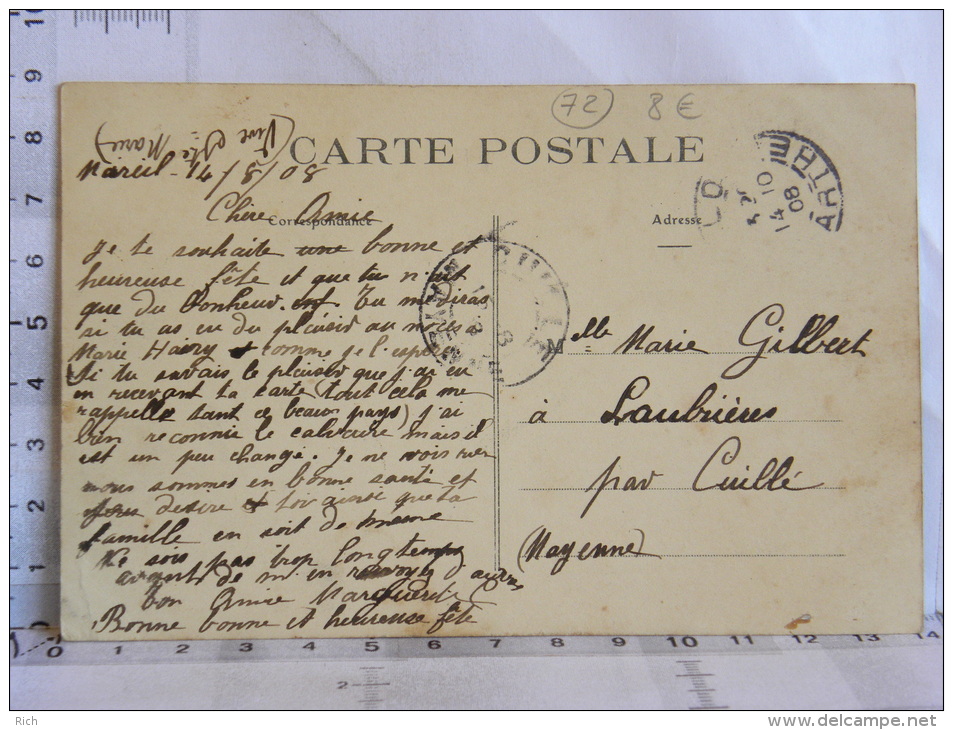 72 8 €
(Vive Ste Marie)
CARTE POSTALE
Mareil - 14/8/08
Chère Amie
Correspondance
Adresse
Je te souhaite une bonne et
heureuse fête et que tu n'ait
que du bonheur. Tu me diras
si tu as eu du plaisir au noces à
Marie Hairy comme je l'espère
Si tu savais le plaisir que j'ai eu
en recevant ta carte (tout cela me
rappelle tant ce beau pays) j'ai
bien reconnie le calvaire mais il
est un peu changé. Je ne vois rien
nous sommes en bonne santé et
desire toi ainsi que ta
famille en soit de meme
Ne sois pas trop longtemps
avant de m'en renvoyer d'autres
bon Amie Marguerite
Bonne bonne et heureuse fête
Mlle Marie Gilbert
à Laubrières
par Cuillé
(Mayenne)
SARTHE
14 10
08
10
9
8
7
6
5
4
3
2
1
0
0 1 2 3 4 5 6 7 8 9 10 11 12 13 14
2
Rich
www.delcampe.net